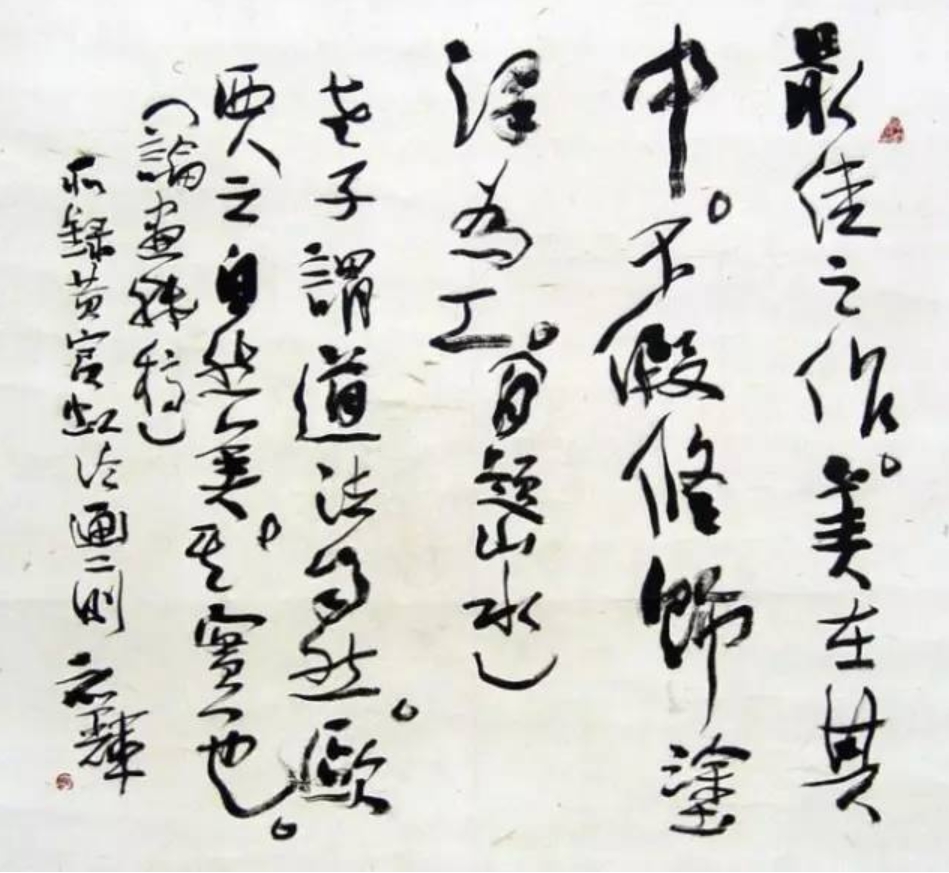 最佳之作。美在其
中。不假修飾塗
澤為工。（自題山水）
老子謂道法自然。歐
西人之自然美。其實一也。
（論畫殘稿）
錄黃賓虹论畫二则